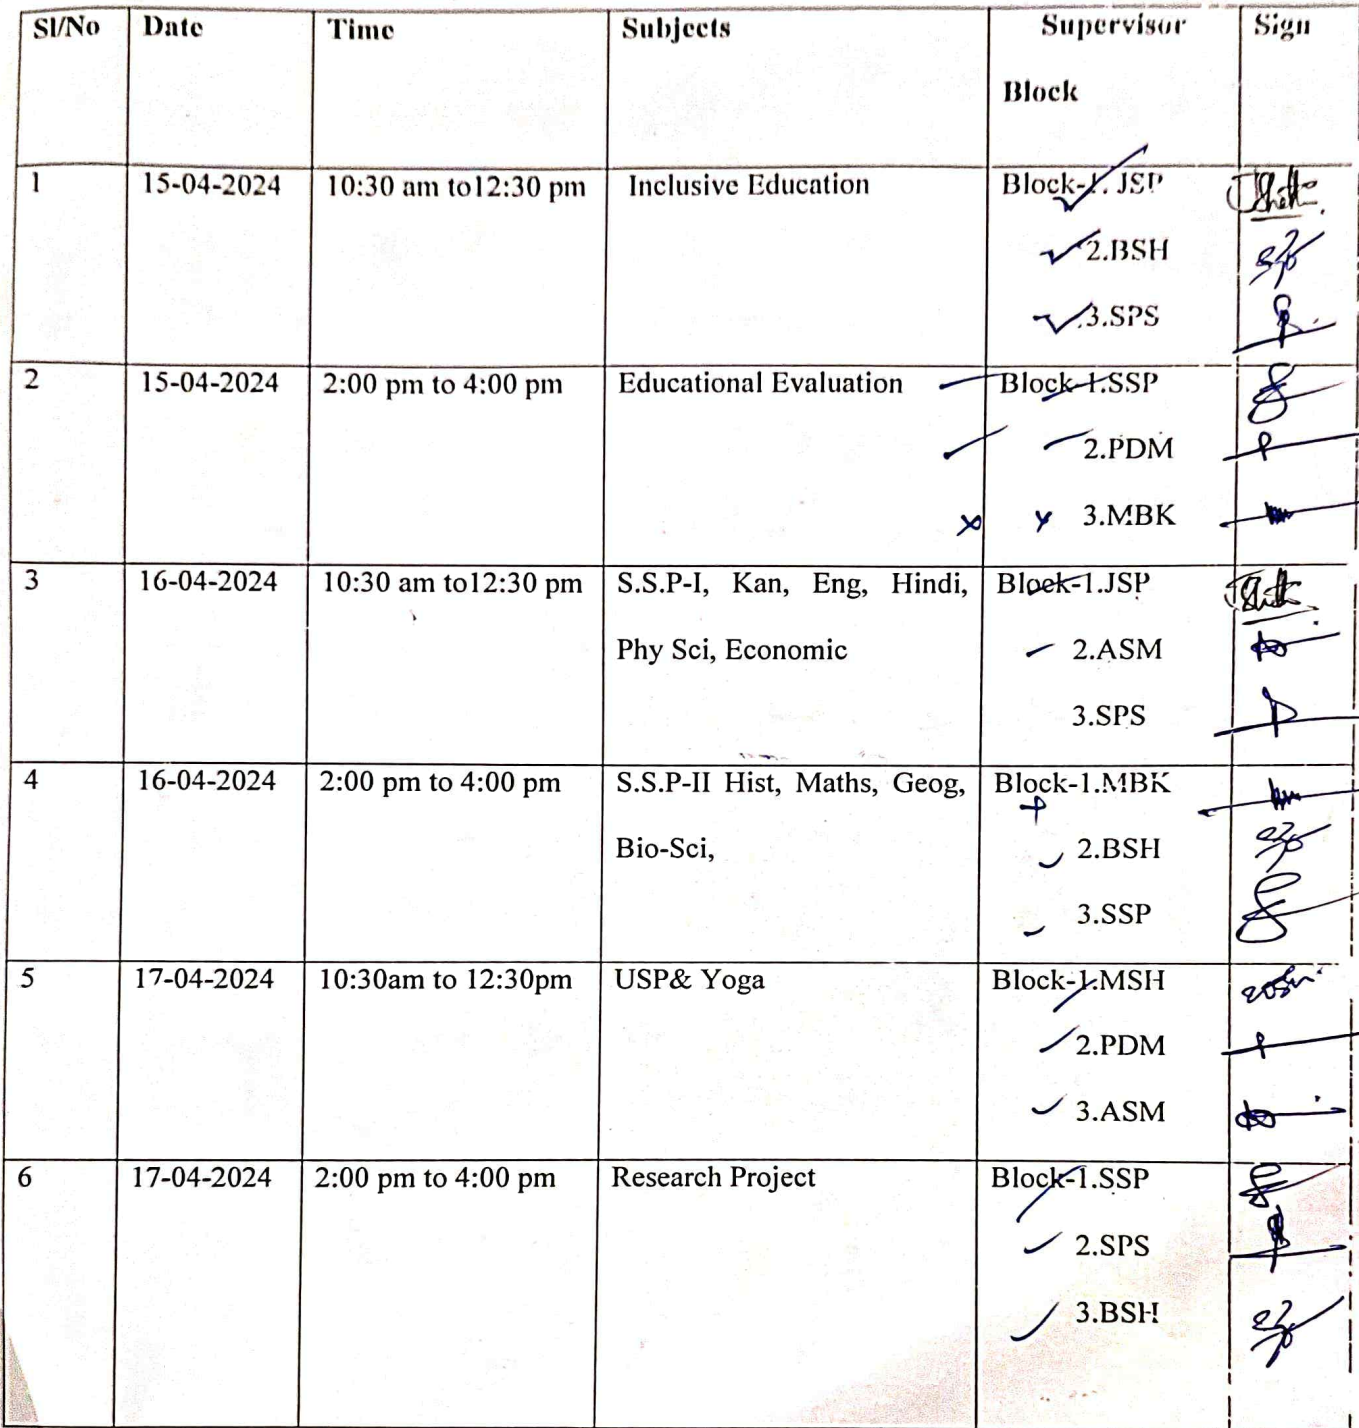 Sl/No Date Time Subjects Supervisor Sign
Block
1 15-04-2024 10:30 am to12:30 pm Inclusive Education Block-1. JSP
2.BSH
3.SPS
2 15-04-2024 2:00 pm to 4:00 pm Educational Evaluation Block-1.SSP
2.PDM
3.MBK
3 16-04-2024 10:30 am to12:30 pm S.S.P-I, Kan, Eng, Hindi, Block-1.JSP
Phy Sci, Economic 2.ASM
3.SPS
4 16-04-2024 2:00 pm to 4:00 pm S.S.P-II Hist, Maths, Geog, Block-1.MBK
Bio-Sci, 2.BSH
3.SSP
5 17-04-2024 10:30am to 12:30pm USP& Yoga Block-1.MSH
2.PDM
3.ASM
6 17-04-2024 2:00 pm to 4:00 pm Research Project Block-1.SSP
2.SPS
3.BSH